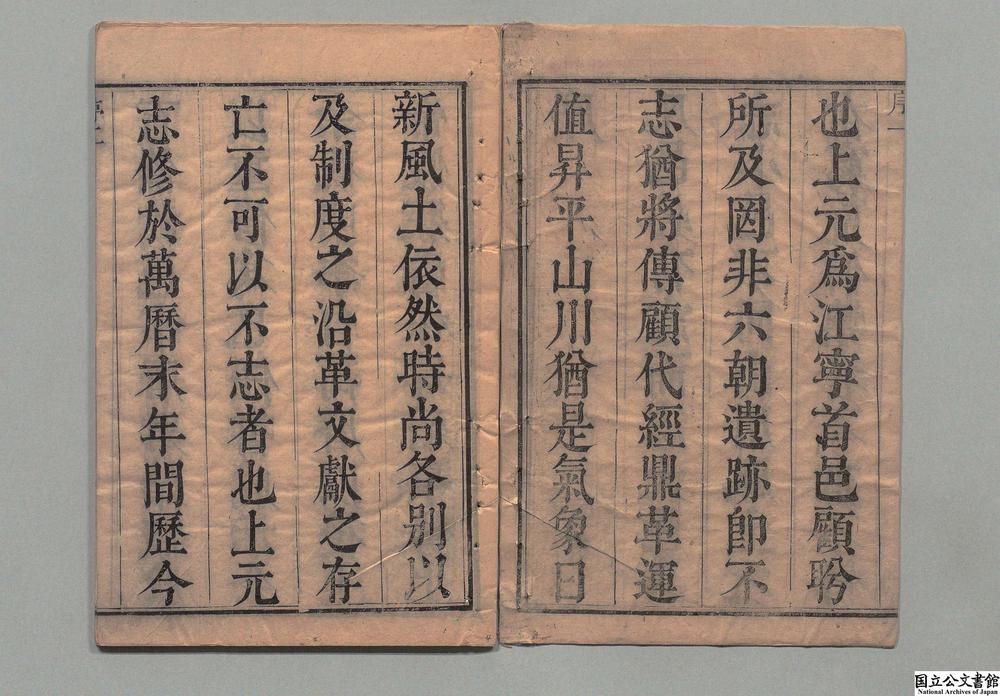 序一
也上元爲江寧首邑顧盻
所及罔非六朝遺跡即不
志猶將傳顧代經鼎革運
值昇平山川猶是氣象日
新風土依然時尚各別以
及制度之沿革文獻之存
亡不可以不志者也上元
志修於萬曆末年間歷今
国立公文書館
National Archives of Japan